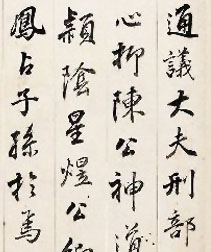 通議大夫刑部
心抑陳公神道
潁陰星煜公
鳳占子孫於焉